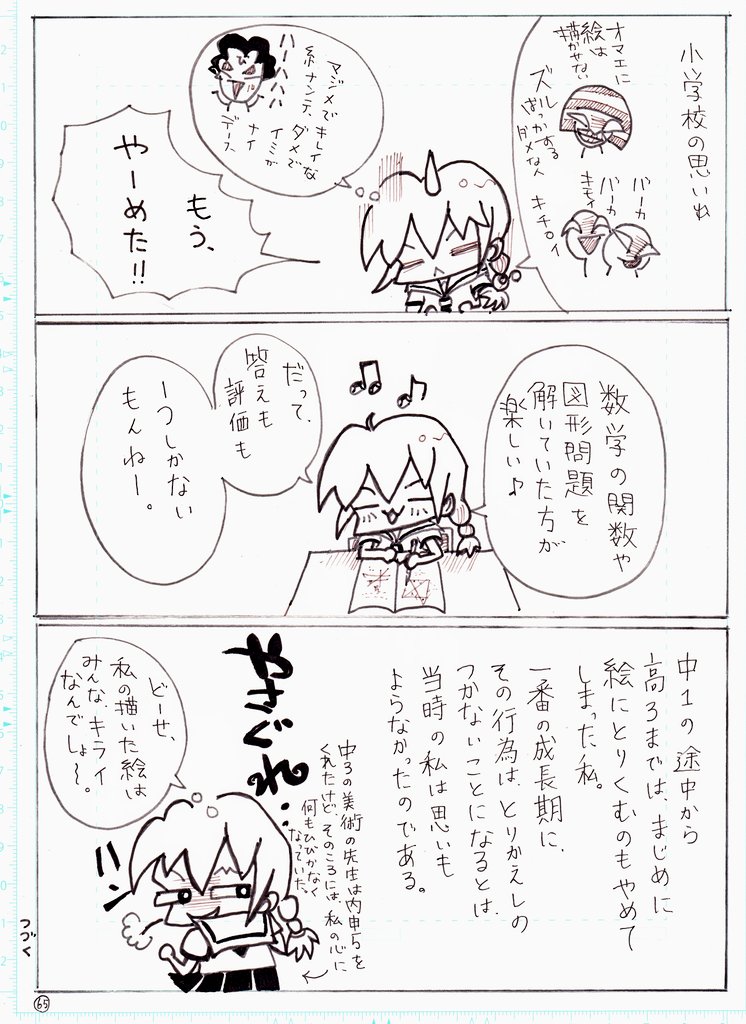 小学校の思いね
オマエに
絵は
描かせない
ズルばっかする
ダメな人
バーカ
バーカ
キモイ
キチ
ハーハハハ
マジメでキレイな
絵ナンテ、ダメで
イミが
ナイ
デース
もう、
やーめた!!
数学の関数や
図形問題を
解いていた方が
楽しい♪
だって、
答えも
評価も
一つしかない
もんねー。
中1の途中から
高3までは、まじめに
絵にとりくむのもやめて
しまった私。
一番の成長期に、
その行為は、とりかえしの
つかないことになるとは、
当時の私は思いも
よらなかったのである。
中3の美術の先生は内申5を
くれたけど、そのころには、私の心に
何もひびかなく
なっていた。
やさぐれ・・
どーせ、
私の描いた絵は
みんな、キライ
なんでしょ〜。
ハン
つづく
65